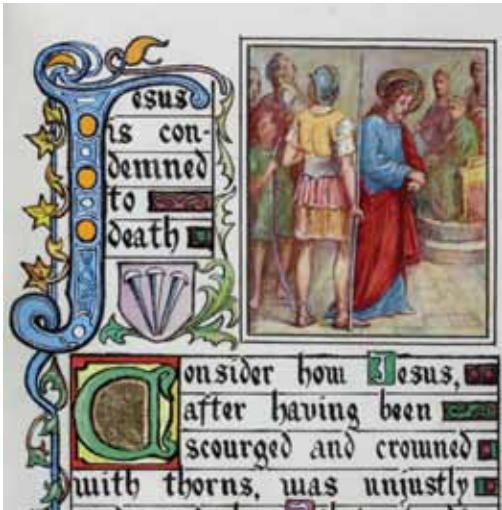 Jesus
is con-
demned
to
death
Consider how Jesus,
after having been
scourged and crowned
with thorns, was unjustly